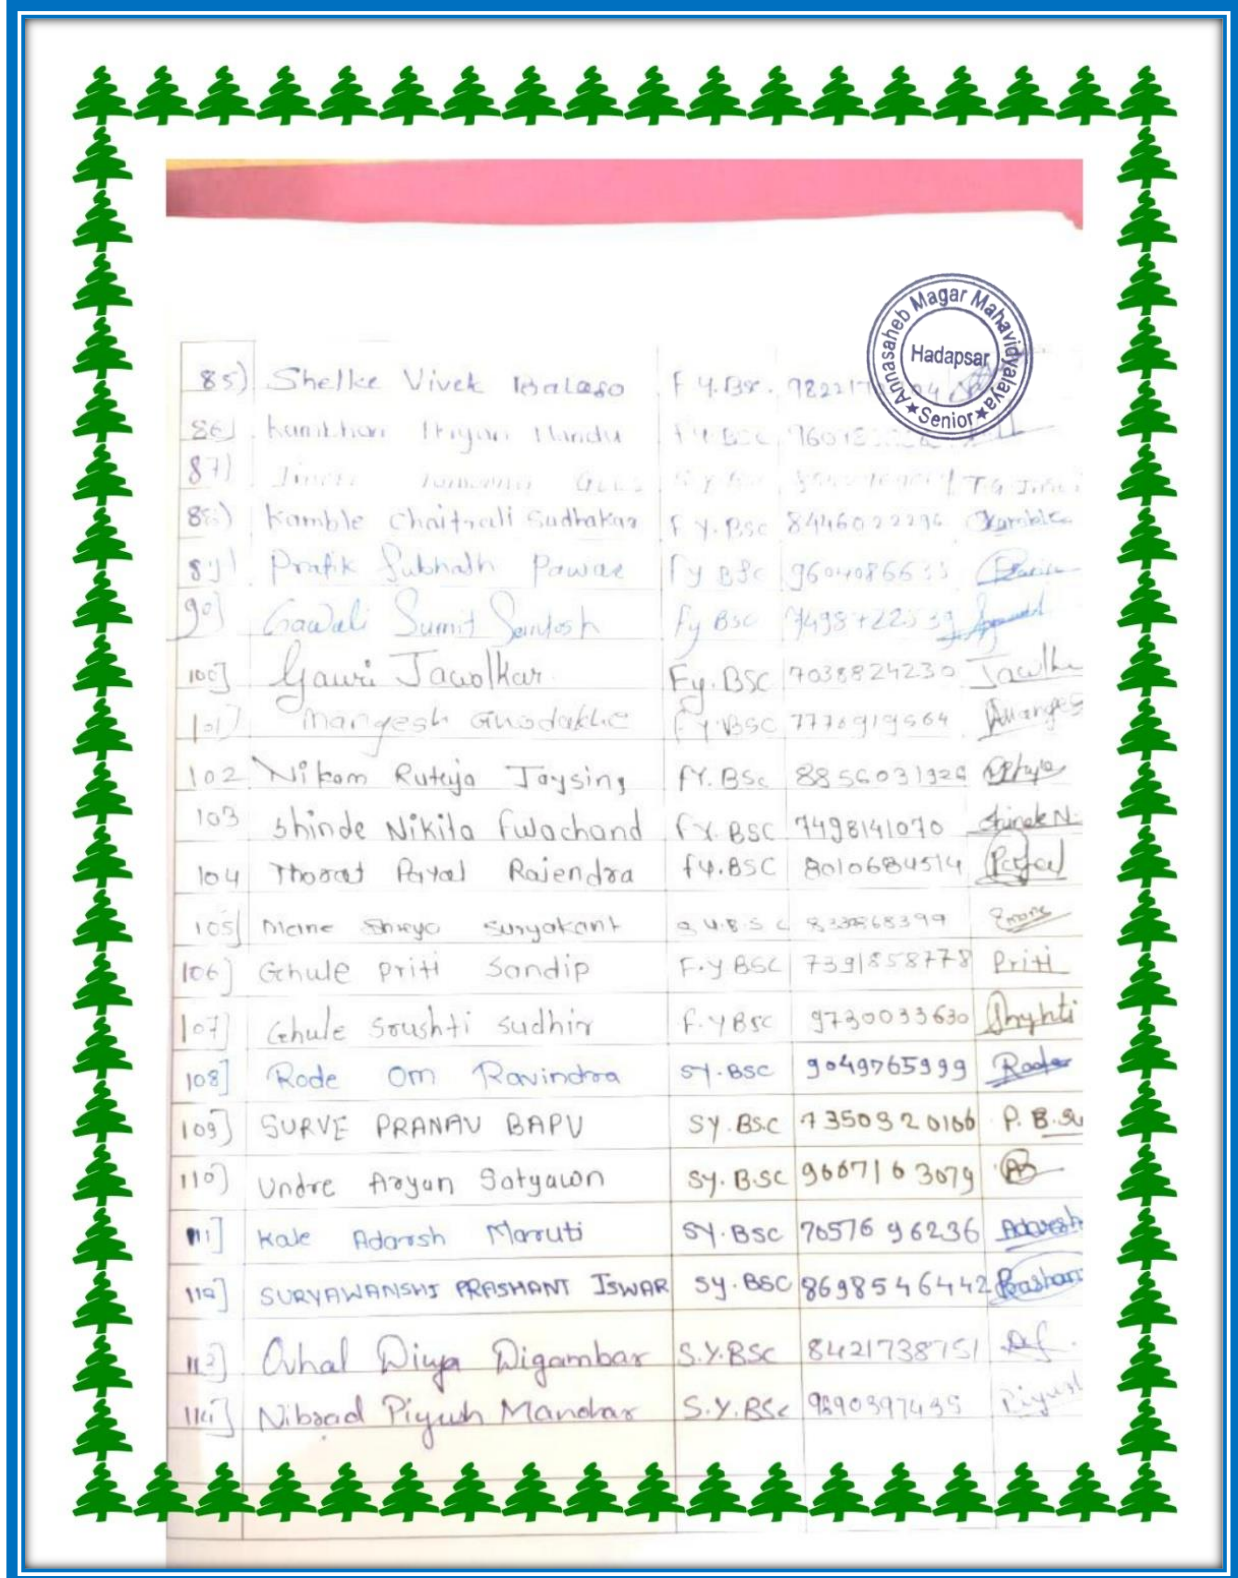 Annasaheb Magar Mahavidyalaya
Hadapsar
★ Senior ★
85) Shelke Vivek Balaso F Y.BSc.
86)
87)
88) Kamble Chaitrali Sudhakar F Y.BSc 8446022296 Kamble
89) Pratik Subhash Pawar Fy BSc
90) Gawali Sumit Santosh Fy BSc
100] Gauri Jawalkar. Fy.BSC 7038824230 Jawlke
101) Mangesh Ghodakhe F.Y.BSC 7770919564 Manges
102 Nikam Rutuja Jaysing FY.BSc 8856031926
103 Shinde Nikita Fulachand FY.BSC 7498141070 Shinde N.
104 Thorat Payal Rajendra FY.BSC 8010684514 Payal
105) Mane Shreya Suryakant
106] Ghule Priti Sandip F.Y BSC 7391858778 Priti
107] Ghule Srushti Sudhir F.Y BSC 9730033630
108] Rode Om Ravindra SY.BSC 9049765999 Rode
109] SURVE PRANAV BAPU SY.BSC 7350920166 P. B. Su
110) Undre Aryan Satyawan SY.B.SC 9667163079
111] Kale Adarsh Maruti SY.BSC 7057696236 Adarsh
112] SURYAWANSHI PRASHANT ISWAR SY.BSC 8698546442 Prashan
113] Ovhal Divya Digambar S.Y.BSC 8421738751
114] Nibrad Piyush Manohar S.Y.BSc Piyush